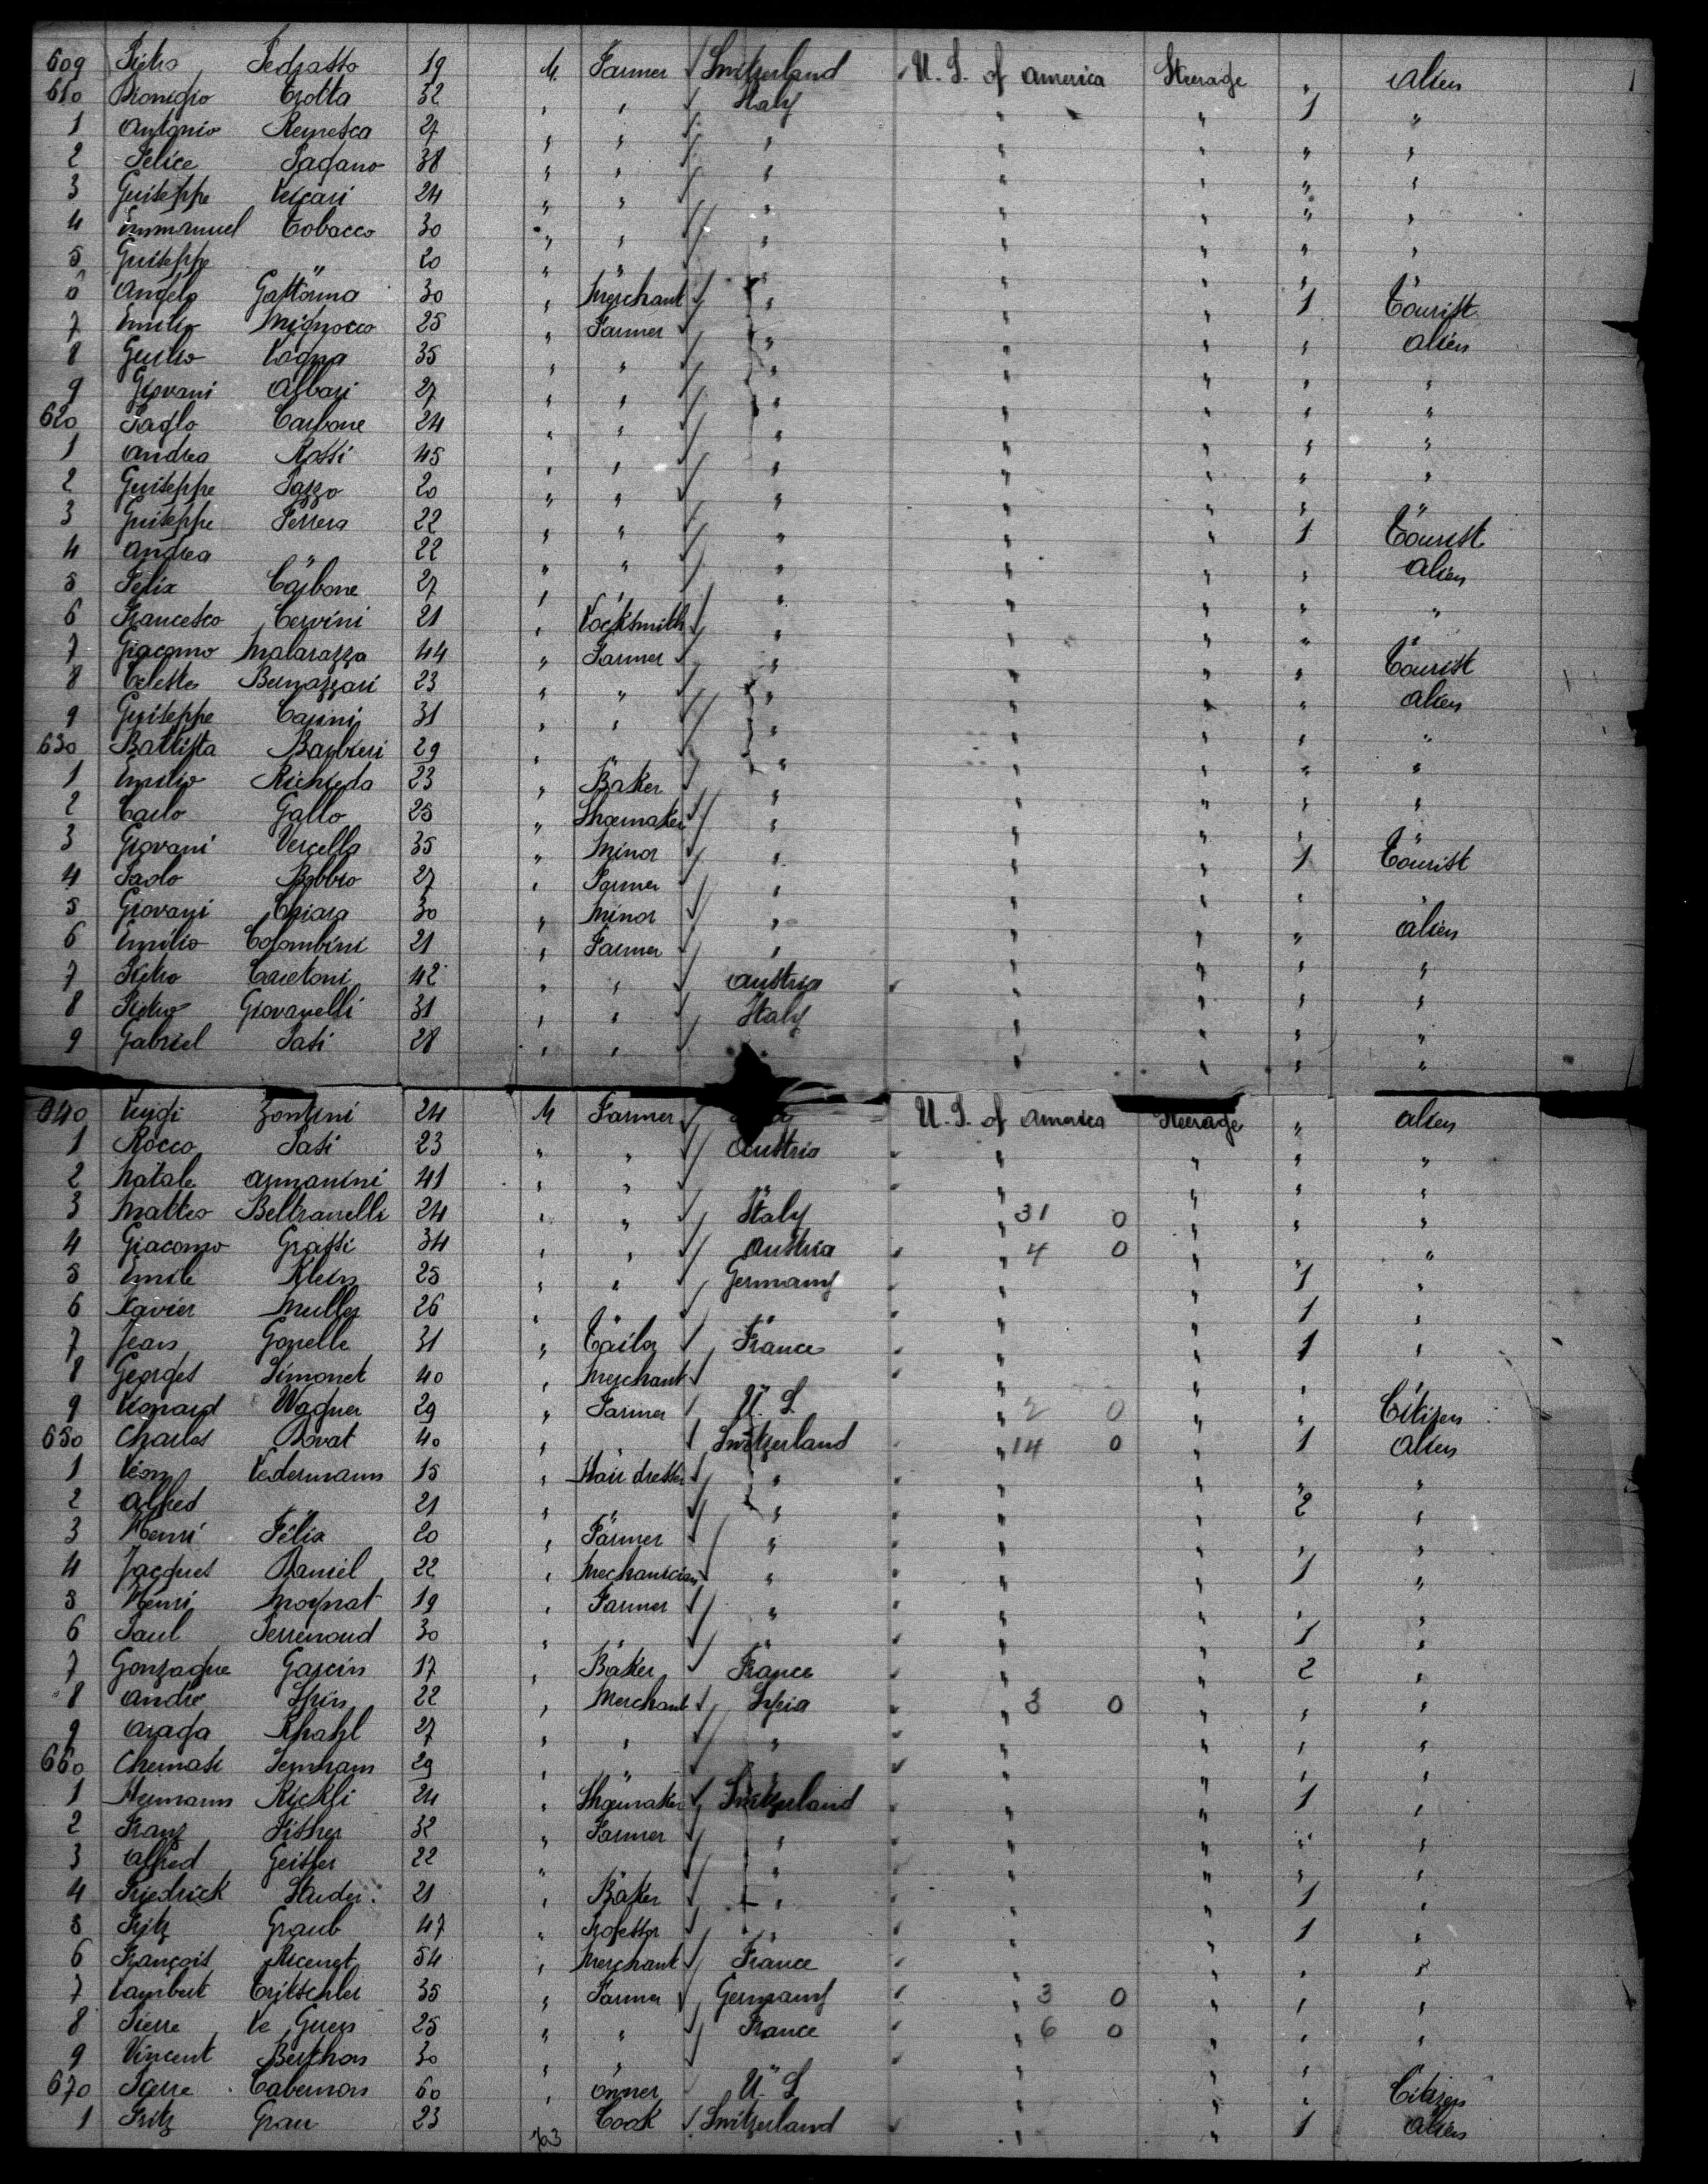 609 Pietro Pedratto 19 M. Farmer Switzerland U. S. of America Steerage " Alien
610 Dionigio Trotta 32 " " Italy " " 1 "
1 Antonio 27 " " " " " " "
2 Felice Pagano 38 " " " " " " "
3 Guiseppe Vercari 24 " " " " " " "
4 Emmanuel Tobacco 30 " " " " " " "
5 Guiseppe " 20 " " " " " "
6 Angelo Gattorna 30 " Merchant " " " 1 Tourist
7 Emilio Mignocco 25 " Farmer " " " " Alien
8 Guilio Lagna 35 " " " " " " "
9 Giovani Albari 27 " " " " " " "
620 Paolo Carbone 24 " " " " " " "
1 Andrea Rossi 45 " " " " " " "
2 Guiseppe Pazzo 20 " " " " " " "
3 Guiseppe Ferrera 22 " " " " " 1 Tourist
4 Andrea " 22 " " " " " " Alien
5 Felix Carbone 27 " " " " " " "
6 Francesco Cervini 21 " Locksmith " " " "
7 Giacomo Malarazza 44 " Farmer " " " " Tourist
8 Celeste Bernazzari 23 " " " " " " Alien
9 Guiseppe Carini 31 " " " " " " "
630 Battista Barbieri 29 " " " " " " "
1 Emilio Richieda 23 " Baker " " " " "
2 Carlo Gallo 25 " Shoemaker " " " "
3 Giovani Vercella 35 " Minor " " " 1 Tourist
4 Paolo Bobbio 27 " Farmer " " " " "
5 Giovani Chiara 30 " Minor " " " " Alien
6 Emilio Colombini 21 " Farmer " " " " "
7 Pietro Caretoni 42 " " Austria " " " "
8 Pietro Giovanelli 31 " " Italy " " " "
9 Gabriel Pasi 28 " " " " " "
640 Luigi Zontini 24 M Farmer U. S. of America Steerage " Alien
1 Rocco Pasi 23 " " Austria " " " "
2 Natale Armanini 41 " " " " " " "
3 Matteo Beltranelli 24 " " Italy " 31 0 " " "
4 Giacomo Grassi 34 " " Austria " 4 0 " " "
5 Emile Klein 25 " " Germany " " 1 "
6 Xavier Muller 26 " " " " " 1 "
7 Jean Gonelle 31 " Tailor France " " 1 "
8 Georges Simonet 40 " Merchant " " " "
9 Leonard Wagner 29 " Farmer U. S. " 2 0 " " Citizen
650 Charles Bovat 40 " " Switzerland " 14 0 " 1 Alien
1 Léon Ledermann 15 " Hair dresser " " " " "
2 Alfred " 21 " " " " " 2 "
3 Henri Félix 20 " Farmer " " " " "
4 Jacques Daniel 22 " Mechanician " " " 1 "
5 Henri Moynat 19 " Farmer " " " " "
6 Paul Perrenoud 30 " " " " " 1 "
7 Gonzague Garcin 17 " Baker France " " 2 "
8 André Spin 22 " Merchant Syria " 3 0 " " "
9 Araga Khahl 27 " " " " " " "
660 Chemasi Semham 29 " " " " " " "
1 Hermann Rickli 24 " Shoemaker Switzerland " " 1 "
2 Franz Fisher 32 " Farmer " " " " "
3 Alfred Geisser 22 " " " " " " "
4 Friedrick Studer 21 " Baker " " " 1 "
5 Fritz Graub 47 " Professor " " " 1 "
6 François Ricenet 54 " Merchant France " " " "
7 Lambert Tritschler 35 " Farmer Germany " 3 0 " " "
8 Pierre Le Guen 25 " " France " 6 0 " " "
9 Vincent Berthon 30 " " " " " "
670 Pierre Cabernon 60 " Owner U. S " " " Citizen
1 Fritz Grau 23 Cook Switzerland " " 1 Alien